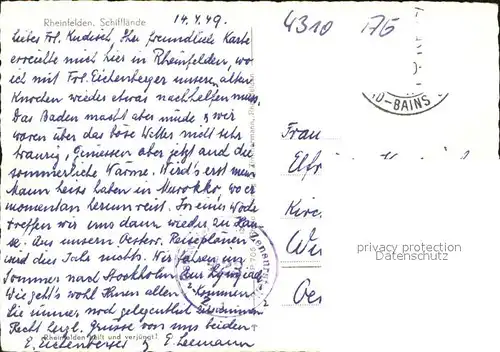 Rheinfelden. Schifflände
14.7.49.
4310 176
Liebes Frl. Kudisch, Ihre freundliche Karte
erreichte mich hier in Rheinfelden, wo
ich mit Frl. Eichenberger unseren alten
Knochen wieder etwas nachhelfen muss.
Das Baden macht aber müde & wir
waren über das böse Wetter nicht sehr
traurig, geniessen aber jetzt auch die
sommerliche Wärme. Wird's erst mein
Mann heiss haben in Marokko, wo er
momentan herumreist. In einer Woche
treffen wir uns dann wieder zu Hau-
se. Aus unsern Oesterr. Reiseplänen
wird dies Jahr nichts. Wir fahren im
Sommer nach Stockholm
Wie geht's wohl Ihnen allen? Kommen
Sie immer noch gelegentlich zusammen
Recht herzl. Grüsse von uns beiden
E. Eichenberger & E. Leemann
Rheinfelden heilt und verjüngt!
-BAINS
Frau
Elfr
Kirc
Wi
Oes
privacy protection
Datenschutz